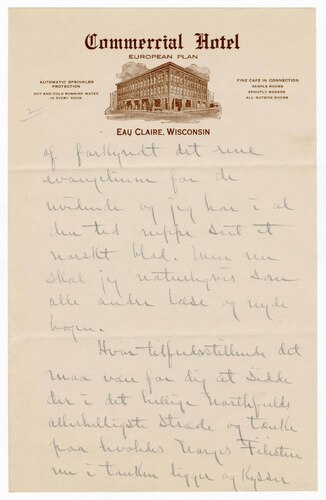 Commercial Hotel
EUROPEAN PLAN
AUTOMATIC SPRINKLER
PROTECTION
HOT AND COLD RUNNING WATER
IN EVERY ROOM
FINE CAFE IN CONNECTION
SAMPLE ROOMS
STRICTLY MODERN
ALL OUTSIDE ROOMS
EAU CLAIRE, WISCONSIN
2
og forkyndt det rene
evangelium for de
og jeg har i al
den tid neppe seet et
norskt blad. Men nu
skal jeg naturligvis som
alle andre læse og nyde
bogen.
Hvor tilfredsstillende det
maa være for dig at sidde
der i det hellige Northfields
allerhelligste Strade og tænke
paa hvorledes Norges
nu i tanken ligger og kysser